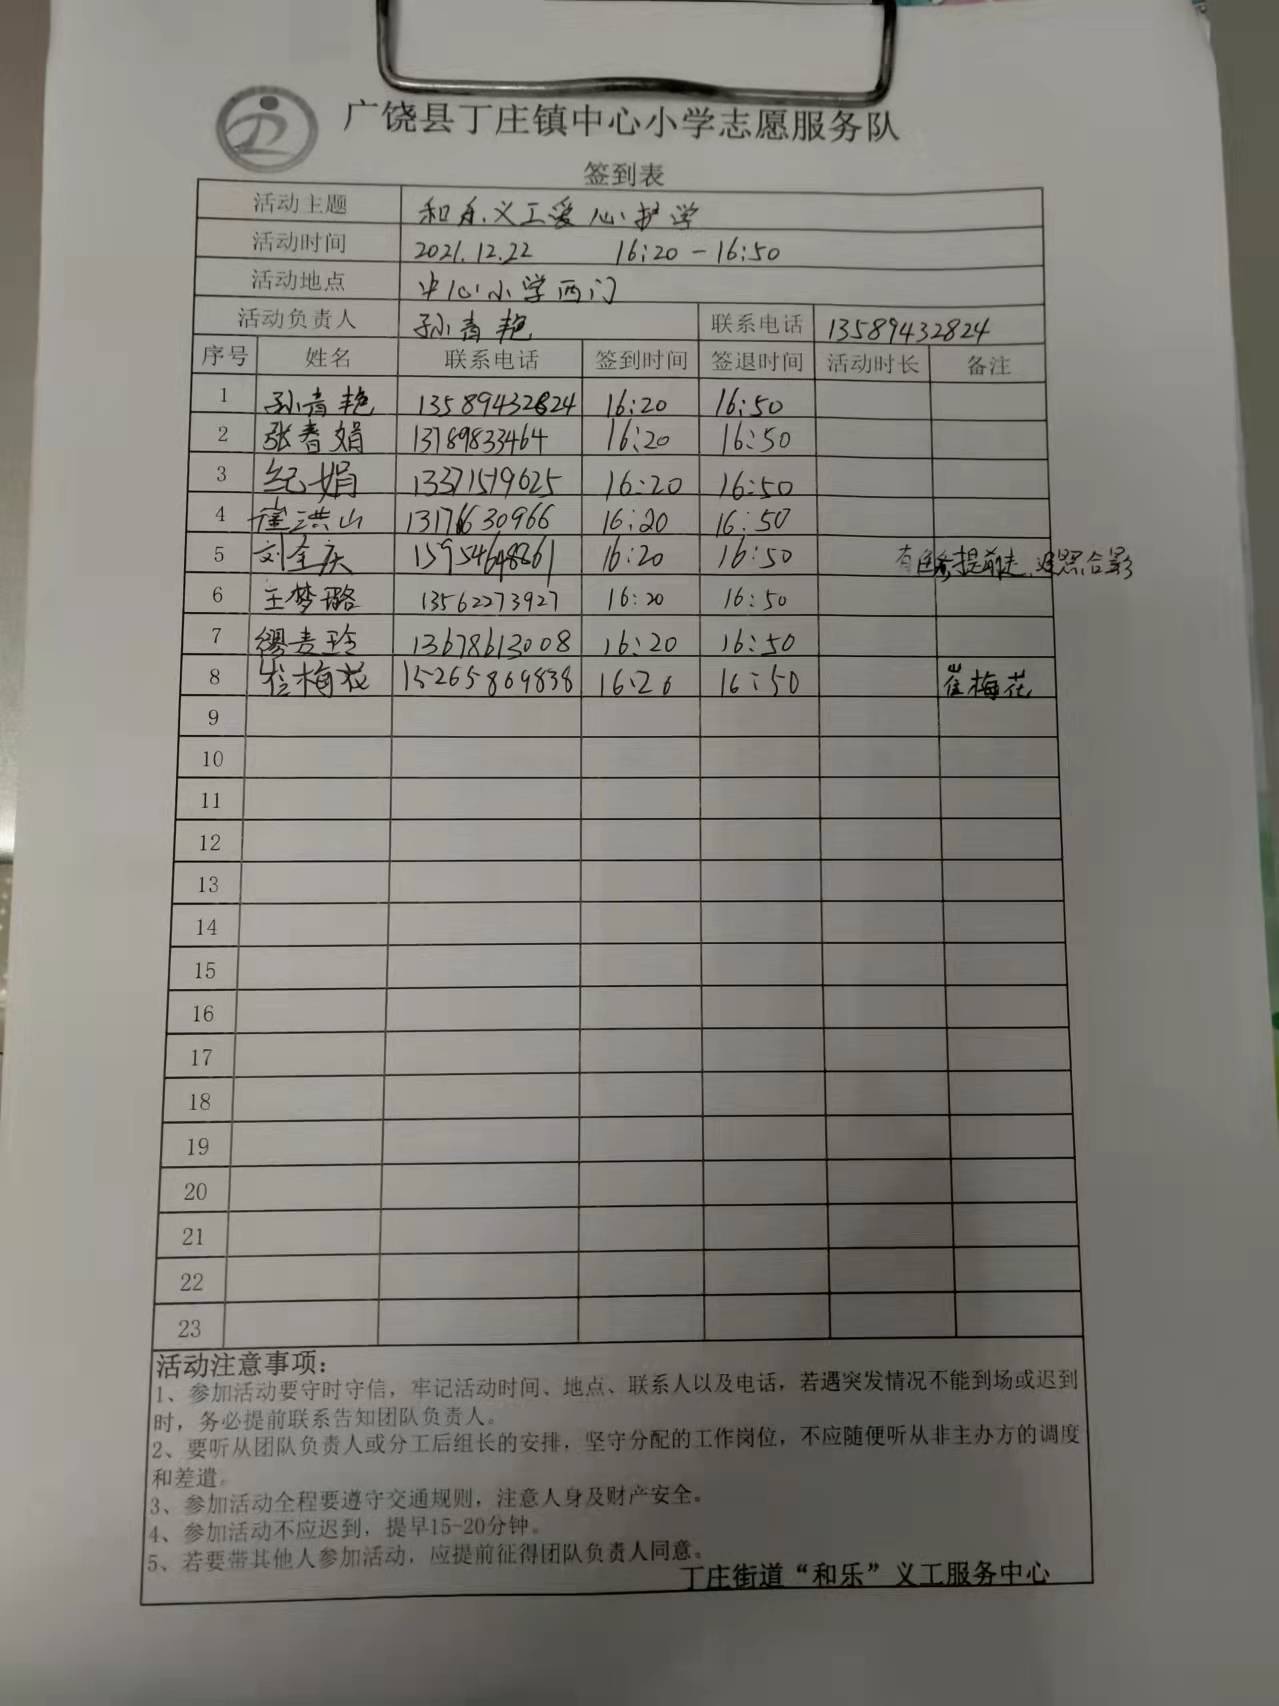 广饶县丁庄镇中心小学志愿服务队
签到表
活动主题 和乐义工爱心护学
活动时间 2021.12.22 16:20-16:50
活动地点 中心小学西门
活动负责人 孙青艳 联系电话 13589432824
序号 姓名 联系电话 签到时间 签退时间 活动时长 备注
1 孙青艳 13589432824 16:20 16:50
2 张春娟 13789833464 16:20 16:50
3 纪娟 13371519625 16:20 16:50
4 崔洪山 13176630966 16:20 16:50
5 刘全庆 16:20 16:50 有 提前走，没照合影
6 王梦璐 13562273927 16:20 16:50
7 缪麦玲 13678613008 16:20 16:50
8 崔梅花 15265869838 16:20 16:50 崔梅花
9
10
11
12
13
14
15
16
17
18
19
20
21
22
23
活动注意事项：
1、参加活动要守时守信，牢记活动时间、地点、联系人以及电话，若遇突发情况不能到场或迟到
时，务必提前联系告知团队负责人。
2、要听从团队负责人或分工后组长的安排，坚守分配的工作岗位，不应随便听从非主办方的调度
和差遣。
3、参加活动全程要遵守交通规则，注意人身及财产安全。
4、参加活动不应迟到，提早15-20分钟。
5、若要带其他人参加活动，应提前征得团队负责人同意。
丁庄街道“和乐”义工服务中心